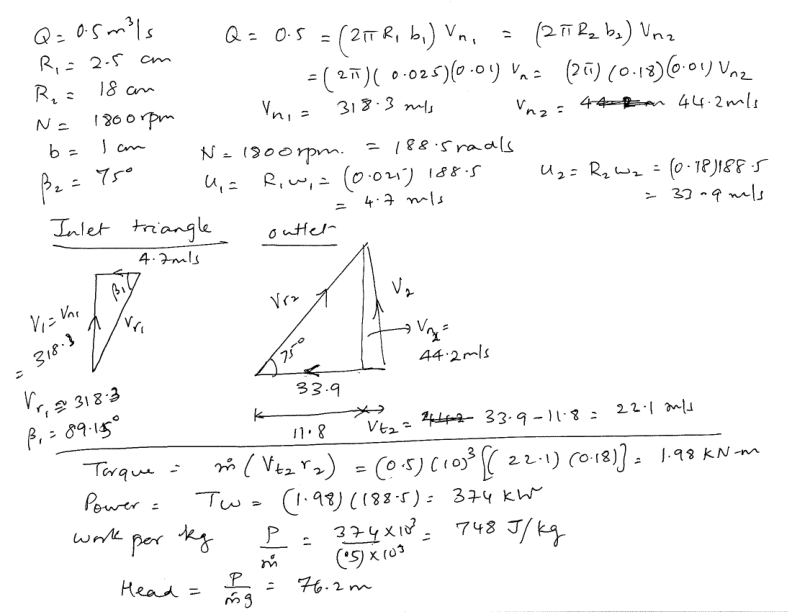 Q = 0.5 m³/s
R₁ = 2.5 cm
R₂ = 18 cm
N = 1800 rpm
b = 1 cm
β₂ = 75°
Q = 0.5 = (2π R₁ b₁) Vn₁ = (2π R₂ b₂) Vn₂
= (2π)(0.025)(0.01) Vn = (2π)(0.18)(0.01) Vn₂
Vn₁ = 318.3 m/s Vn₂ = 44.2 m/s
N = 1800 rpm. = 188.5 rad/s
u₁ = R₁ω₁ = (0.025) 188.5
= 4.7 m/s
u₂ = R₂ω₂ = (0.18)188.5
= 33.9 m/s
Inlet triangle
4.7 m/s
β₁
V₁ = Vn₁
= 318.3
Vr₁
Vr₁ ≅ 318.3
β₁ = 89.15°
outlet
Vr₂
V₂
75°
Vn₂ =
44.2 m/s
33.9
11.8
Vt₂ = 33.9 - 11.8 = 22.1 m/s
Torque = ṁ (Vt₂ r₂) = (0.5)(10)³ [(22.1)(0.18)] = 1.98 kN-m
Power = Tω = (1.98)(188.5) = 374 kW
work per kg P/ṁ = 374 × 10³/(.5) × 10³ = 748 J/kg
Head = P/ṁg = 76.2 m